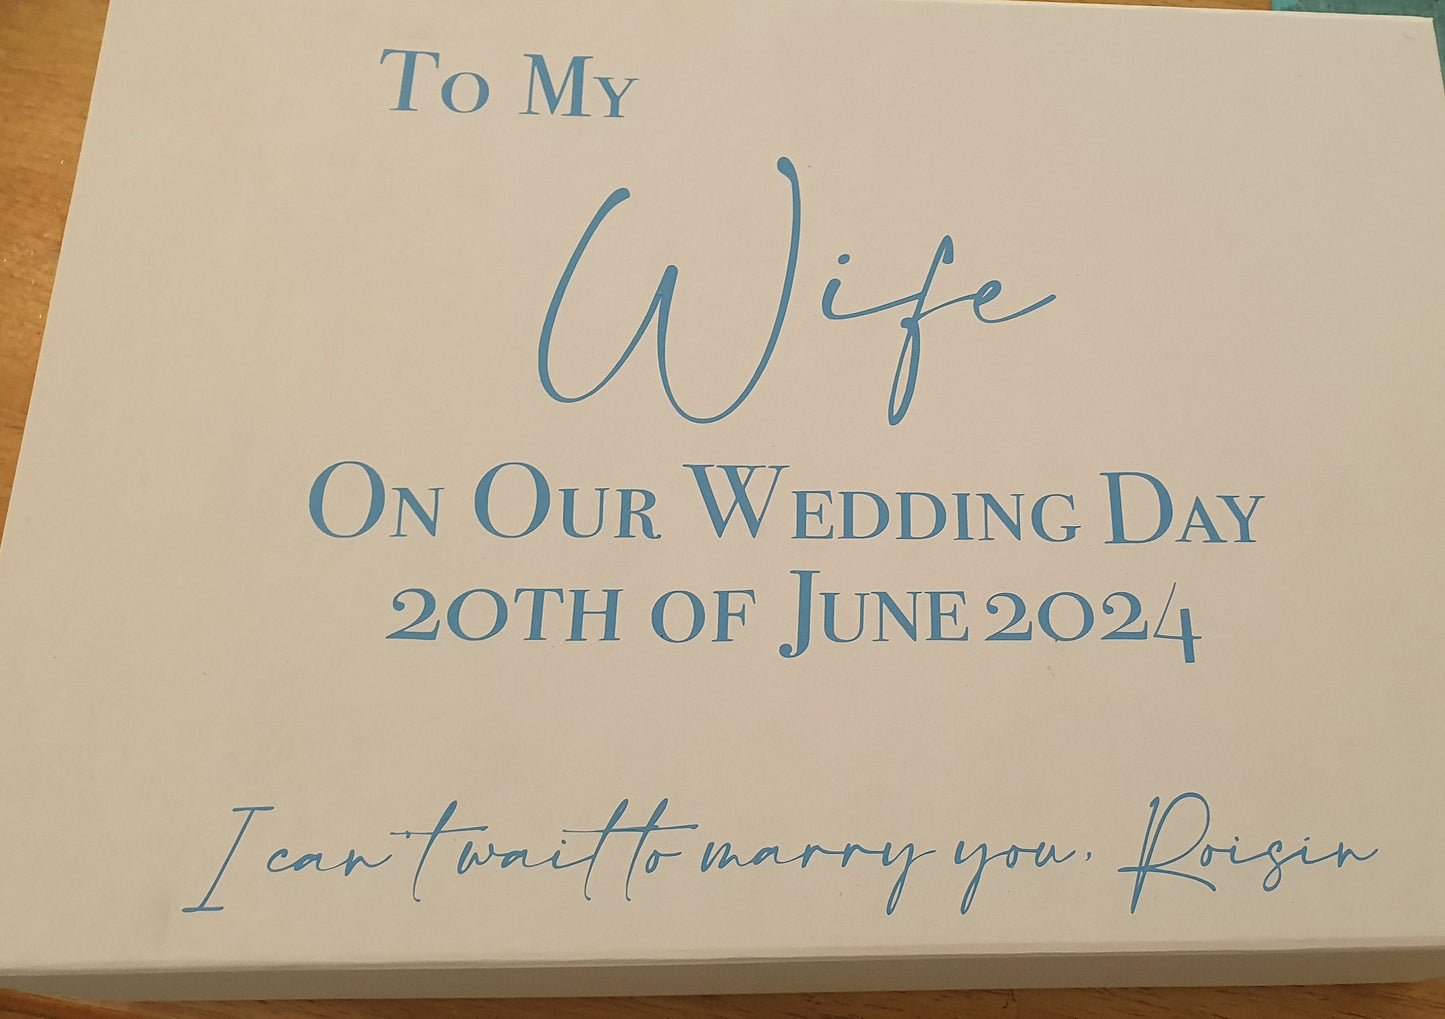 To My
Wife
On Our Wedding Day
20th of June 2024
I can't wait to marry you, Roisin